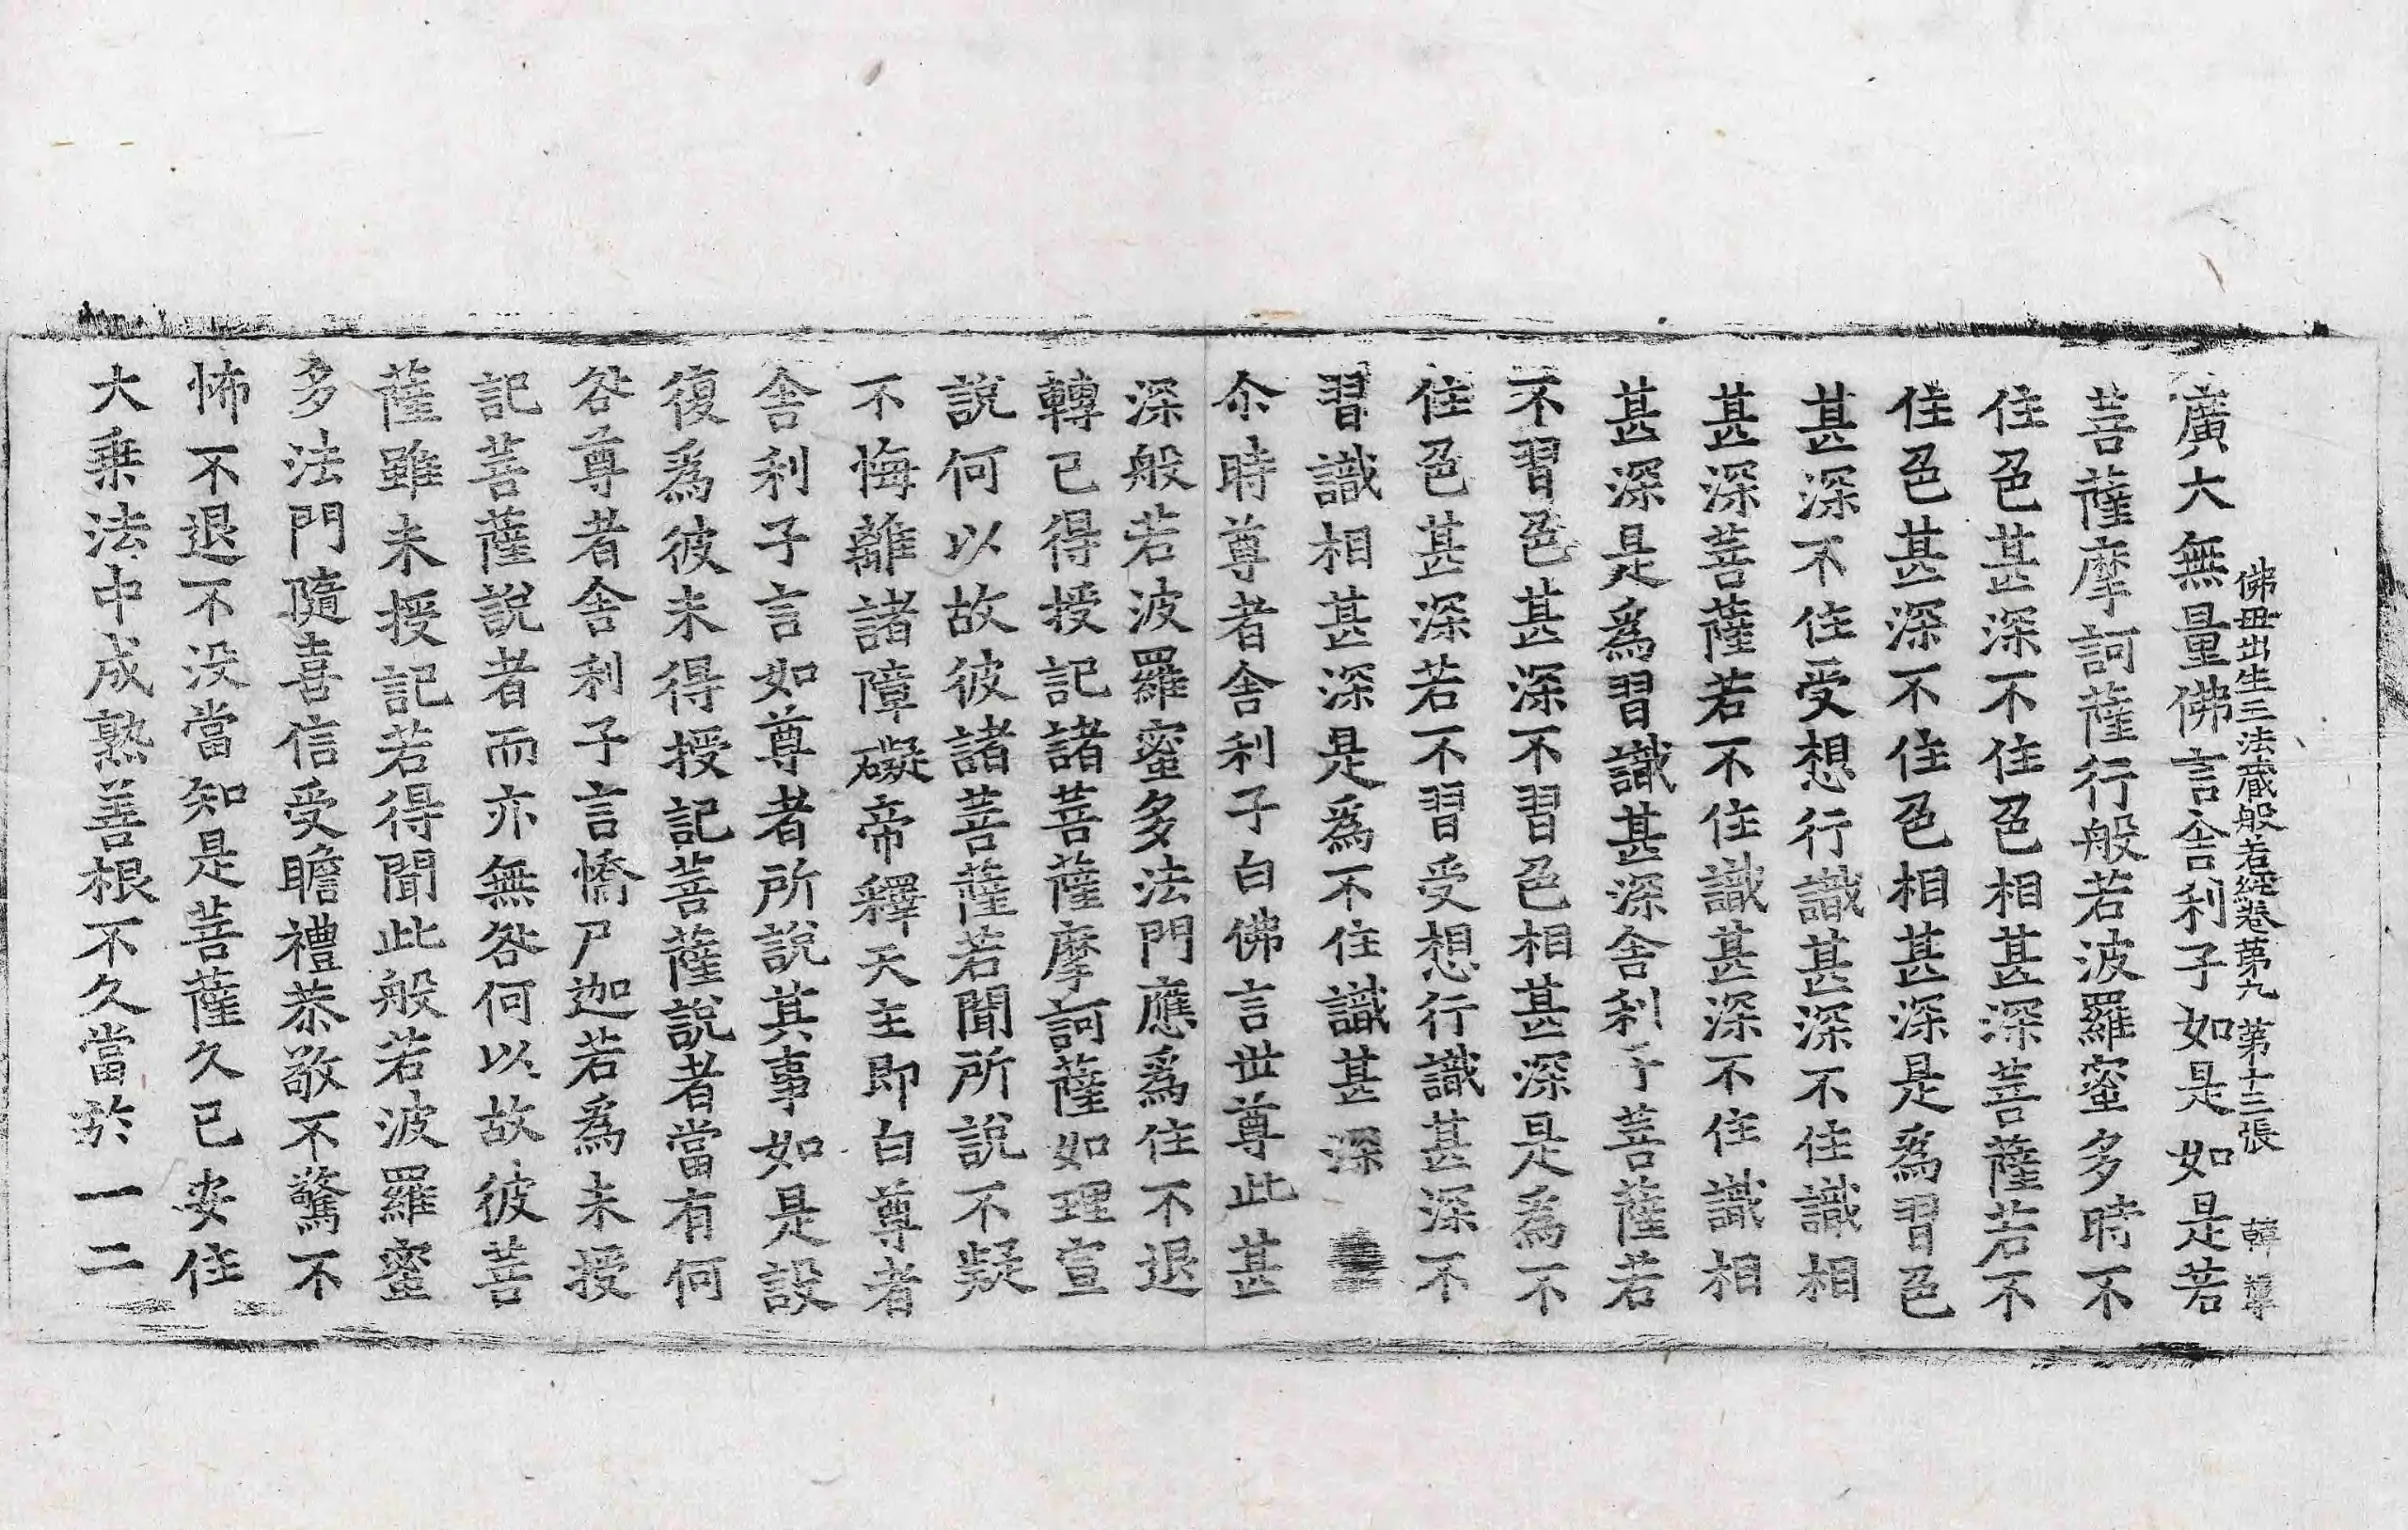 佛母出生三法藏般若經卷苐九 苐十三張 韓
廣大無量佛言舍利子如是如是若
菩薩摩訶薩行般若波羅蜜多時不
住色甚深不住色相甚深菩薩若不
住色甚深不住色相甚深是爲習色
甚深不住受想行識甚深不住識相
甚深菩薩若不住識甚深不住識相
甚深是爲習識甚深舍利子菩薩若
不習色甚深不習色相甚深是爲不
住色甚深若不習受想行識甚深不
習識相甚深是爲不住識甚深
尒時尊者舍利子白佛言世尊此甚
深般若波羅蜜多法門應爲住不退
轉已得授記諸菩薩摩訶薩如理宣
說何以故彼諸菩薩若聞所說不疑
不悔離諸障礙帝釋天主即白尊者
舍利子言如尊者所說其事如是設
復爲彼未得授記菩薩說者當有何
咎尊者舍利子言憍尸迦若爲未授
記菩薩說者而亦無咎何以故彼菩
薩雖未授記若得聞此般若波羅蜜
多法門隨喜信受瞻禮恭敬不驚不
怖不退不没當知是菩薩久已安住
大乗法中成熟善根不久當於一二